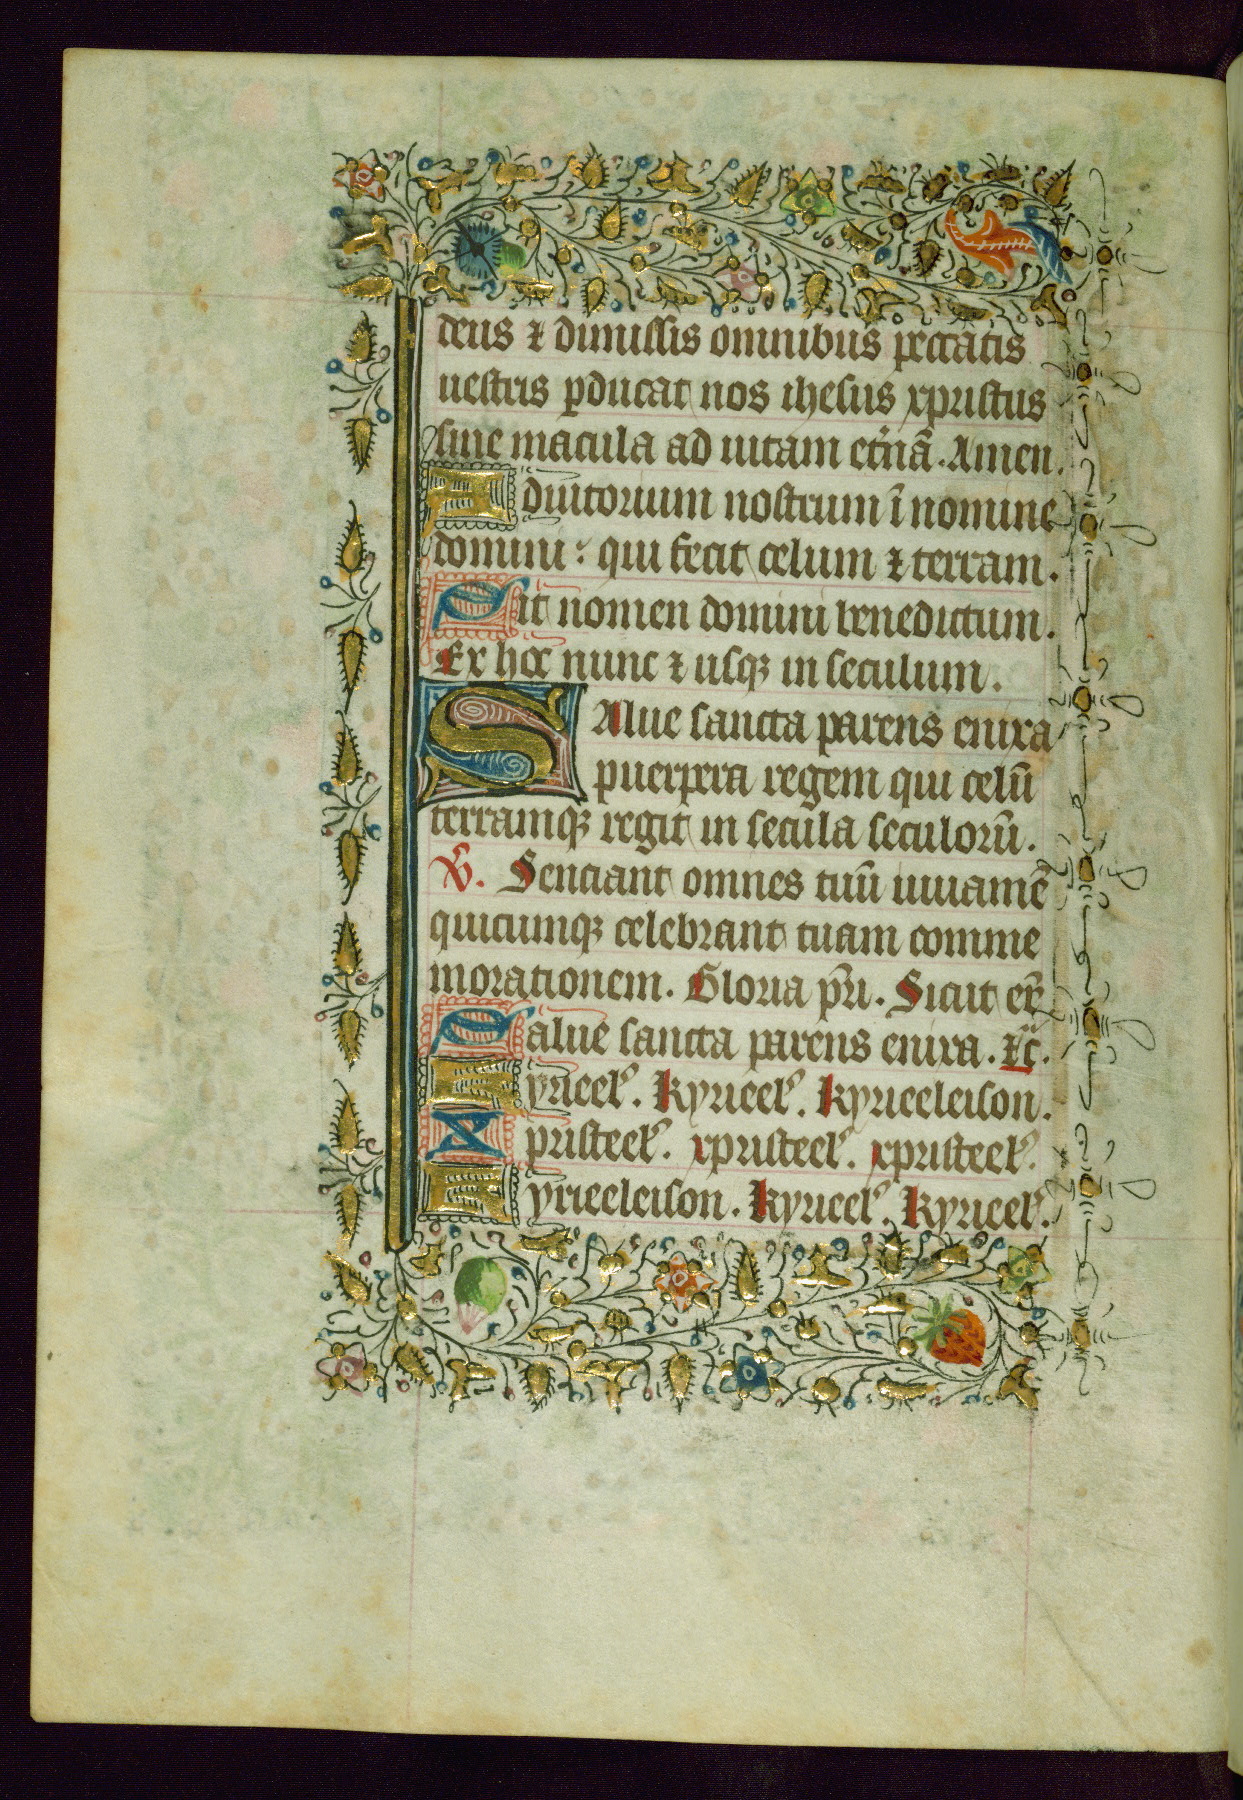 deus ⁊ dimissis omnibus peccatis
uestris ꝑducat nos ihesus xpristus
sine macula ad uitam et̃nã. Amen.
Adiutorium nostrum ĩ nomine
domini: qui fecit celum ⁊ terram.
Sit nomen domini benedictum.
Ex hoc nunc ⁊ usqꝫ in seculum.
SAlue sancta parens enixa
puerpera regem qui celũ
terramqꝫ regit in secula seculorũ.
℣. Senciant omnes tuũ iuuamẽ
quicumqꝫ celebrant tuam comme
morationem. Gloria pr̃i. Sicut er̃
Salue sancta parens enixa. ⁊c̃.
Kyrieel̾. kyrieel̾. kyrieeleison.
Xpristeel̾. xpristeel̾. xpristeel̾.
Kyrieeleison. kyrieel̾. kyrieel̾.